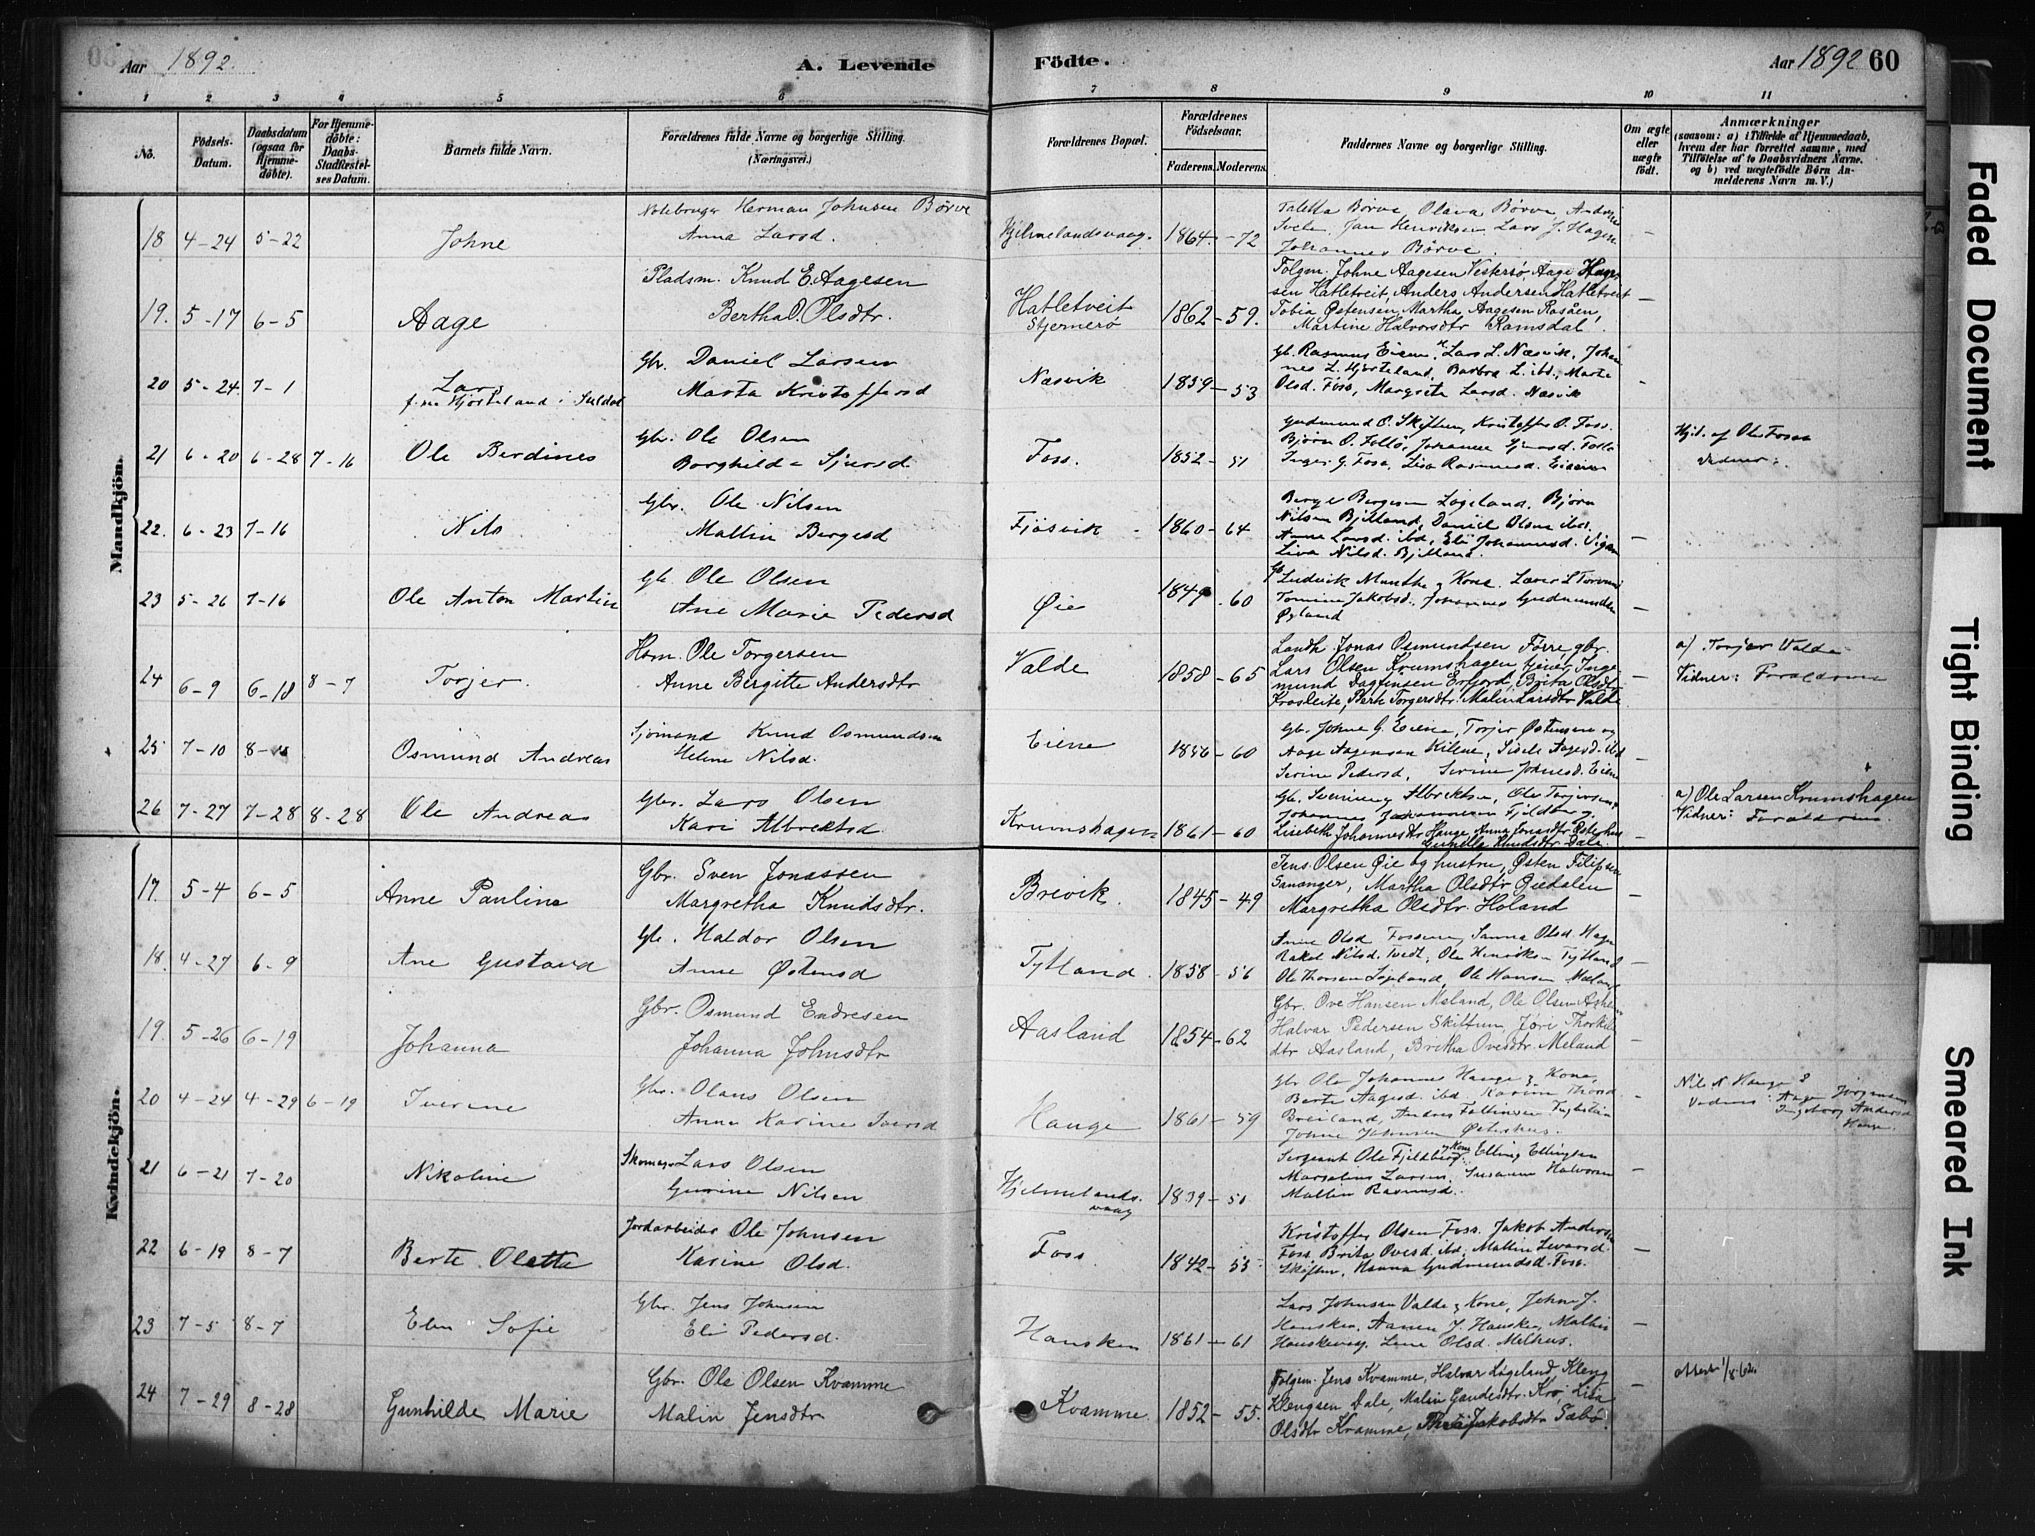 Aar 1892. A. Levende Födte. Aar 1892 60
1 2 3 4 5 6 7 8 9 10 11
No. Födsels-Datum. Daabsdatum (ogsaa for Hjemmedöbte). For Hjemmedöbte: Daabs-Stadfæstelses Datum. Barnets fulde Navn. Forældrenes fulde Navne og borgerlige Stilling. (Næringsvei.) Forældrenes Bopæl. Forældrenes Födselsaar. Faderens. Moderens. Faddernes Navne og borgerlige Stilling. Om ægte eller uægte födt. Anmærkninger (saasom: a) i Tilfælde af Hjemmedaab, hvem der har forrettet samme, med Tilföielse af to Daabsvidners Navne. og b) ved uægtefödte Börn Anmelderens Navn m. V.)
Mandkjön.
Herman Johnsen Börve
18 4-24 5-22 Johne Anna Larsd. Hjelmelandsvaag. 1864 - 72
Taletta Börve Olava Börve
Jan Henriksen Lars J. Hagen
Johannes Börve
19. 5-17 6-5 Aage Pladsm. Knud E. Aagesen
Bertha O. Olsdtr. Hatletveit Stjernerö 1862 - 59.
Folgm. Johne Aagesen Vestersö, Aage
Hatletveit, Anders Andersen Hatletveit
Tobia Østensen, Martha Aagesen
Martine Halvorsdtr Ramsdal.
20 5-24 7-1 Lars Gbr. Daniel Larsen
Marta Kristoffersd Næsvik 1859 - 53
Gb. Rasmus Eiene, Lars L. Næsvik, Johannes L. Hjorteland, Barbra L. ibd., Marte
Olsd. Foss, Margrete Larsd. Næsvik
21 6-20 6-28 7-16 Ole Berdines Gbr. Ole Olsen
Borghilda Sjursd Foss. 1852 - 51
Gudmund O. Skiftun, Kristoffer O. Foss.
Inger G. Foss, Lisa Rasmusd. Eiene
Hjd. af Ole Fosse
22. 6-23 7-16 Nils Gbr. Ole Nilsen
Mallin Bergesd Fjösvik 1860 - 64
Berge Bergesen Løgeland, Björn
Nilsen Bjelland, Daniel Olsen ibd.
Anna Larsd. ibd, Eli Johannesd.
Nilsd. Bjelland
23 5-26 7-16 Ole Anton Martin Gb. Ole Olsen
Ane Marie Pedersd Øie 1849 - 60
Ludvik Munthe & Kone.
Jakobsd. Johannes Gudmundsen
Øyland
24 6-9 6-18 8-7 Torjer. Hsm. Ole Torgersen
Anne Bergitte Andersdtr Valde 1858 - 65
Landh. Jonas Osmundsen Førre, gbr.
Lars Olsen Krumshagen, Einer Ingemund Dagfinsen Erfjord, Brita Olsdtr
Berte Torgersdtr Malin Larsdtr Valde
a) Torjer Valde
Vidner: Forældrene
25 7-10 8- Osmund Andreas Sjömand Knud Osmundsen
Helene Nilsd. Eiene 1856 - 60
Gb. Johne G. Eiene, Torjer Østensen og
Aage Aagensen Kilene, Sisele Aagesd. ibd
Serine Pedersd, Serine Johnsd. Eiene
26 7-27 7-28 8-28 Ole Andreas Gbr. Lars Olsen
Kari Albrektsd Krumshagen 1861 - 60
Albrektsen, Ole Torjersen,
Lisebeth Johannesdtr Hauge Anna Jonasdtr Østerhus
Gunille Knudsdtr Dale.
a) Ole Larsen Krumshagen
Vidner: Forældrene
Kvindekjön.
17. 5-4 6-5 Anne Pauline Gbr. Sven Jonassen
Margretha Knudsdtr. Brevik. 1845 - 49
Jens Olsen Øie og hustru, Østen Filipsen
Martha Olsdtr Øiedalen
Margretha Olsdtr. Holand
18. 4-27 6-9 Ane Gustava Gb. Haldor Olsen
Anne Østensd Tytland. 1858 - 56
Anne Olsd Sanna Olsd.
Rakel Nilsd. Tvedt, Ole Henriksen Tytland
Ole Thorsen Løgland, Ole Hansen Mæland
19. 5-26 6-19 Johanna Gbr. Osmund Endresen
Johanna Johnsdtr Aasland 1854 - 62
Gbr. Ove Hansen Mæland, Ole Olsen
Halvar Pedersen Skiftun, Jøri Thorkelsdtr Aasland, Britha Ovesdtr. Meland
20 4-24 4-29 6-19 Iverine Gbr. Olaus Olsen
Anna Karine Iversd Hauge 1861 - 59
Gbr Ole Johannes Hauge & Kone,
Berte Aagesd. ibd Karine
Breiland, Andres
Johne Johnsen Østerhus.
Nils N Hauge
Aage Jörgensen
Ingeborg Andersd
Hauge.
21 6-21 7-20 Nikoline Skomager Lars Olsen
Gurine Nilsen Hjelmelandsvaag 1839 - 51
Sergeant Ole Fjeldberg & Kone Elling Ellingsen
Marselius Larsen, Susanne Halvorsen
Mallin Rasmusd.
22 6-19 8-7 Berte Oletta Jordarbeider Ole Johnsen
Karine Olsd. Foss 1842 - 53
Kristoffer Olsen Foss. Jakob Andersen
Foss Brita Ovesd. ibd. Mallin
Skiftun, Hanna Gudmundsd. Foss.
23 7-5 8-7 Elen Sofie Gbr. Jens Johnsen
Eli Pedersd. Hausken 1861 - 61
Lars Johnsen Valde & Kone, Johne J.
Hausken, Aanen J. Hausken, Mallin
Lene Olsd. Melhus.
24 7-29 8-28 Gunhilde Marie Gbr. Ole Olsen Kvamme
Malin Jensdtr Kvamme. 1852 - 55.
Folgem. Jens Kvamme, Halvar Løgeland, Kleng
Klengsen Dale, Malin Gaudesdtr. Kro Lisa
Olsdtr Kvamme, Jakobsdtr. Sæbø.
Attest 1/8.62.
Faded Document
Tight Binding
Smeared Ink